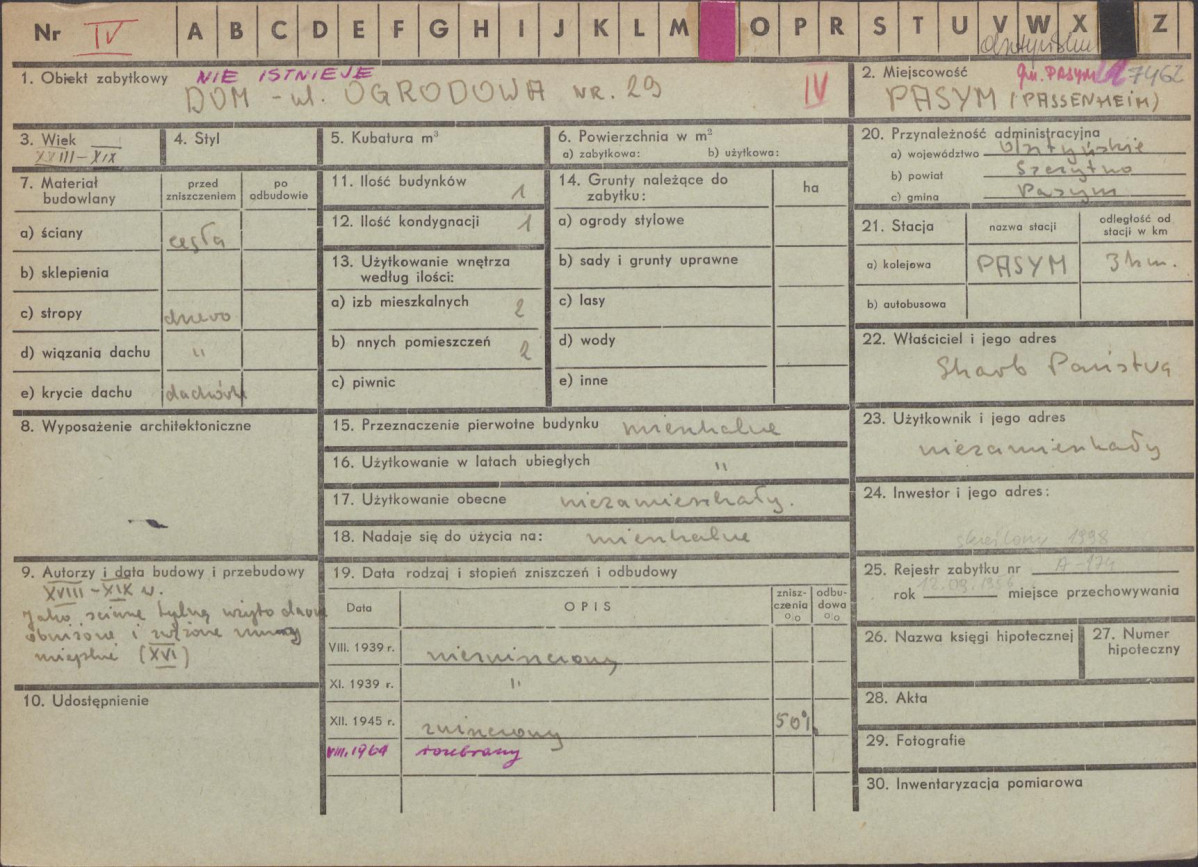 Nr IV A B C D E F G H I J K L M O P R S T U V W X Z
1. Obiekt zabytkowy NIE ISTNIEJE
DOM - ul. OGRODOWA NR. 29 IV
2. Miejscowość gm. PASYM 7462
PASYM (PASSENHEIM)
3. Wiek
XVIII-XIX
4. Styl
5. Kubatura m³
6. Powierzchnia w m²
a) zabytkowa: b) użytkowa:
7. Materiał budowlany
przed zniszczeniem
po odbudowie
a) ściany cegła
b) sklepienia
c) stropy drzewo
d) wiązania dachu "
e) krycie dachu dachówk
8. Wyposażenie architektoniczne
9. Autorzy i data budowy i przebudowy
XVIII-XIX w.
jako ścianę tylną użyto dawne
obniżone i zwężone mury
miejskie (XVI)
10. Udostępnienie
11. Ilość budynków 1
12. Ilość kondygnacji 1
13. Użytkowanie wnętrza
według ilości:
a) izb mieszkalnych 2
b) nnych pomieszczeń 2
c) piwnic
14. Grunty należące do
zabytku:
ha
a) ogrody stylowe
b) sady i grunty uprawne
c) lasy
d) wody
e) inne
15. Przeznaczenie pierwotne budynku mieszkalne
16. Użytkowanie w latach ubiegłych "
17. Użytkowanie obecne niezamieszkały.
18. Nadaje się do użycia na: mieszkalne
19. Data rodzaj i stopień zniszczeń i odbudowy
Data OPIS znisz-czenia % odbu-dowa %
VIII. 1939 r. niezniszczony
XI. 1939 r. "
XII. 1945 r. zniszczony 50%
VIII.1964 rozebrany
20. Przynależność administracyjna
a) województwo Olsztyńskie
b) powiat Szczytno
c) gmina Pasym
21. Stacja
nazwa stacji
odległość od
stacji w km
a) kolejowa PASYM 3 km.
b) autobusowa
22. Właściciel i jego adres
Skarb Państwa
23. Użytkownik i jego adres
niezamieszkały
24. Inwestor i jego adres:
skreślony 1998
25. Rejestr zabytku nr A-174
rok 12.09.1956 miejsce przechowywania
26. Nazwa księgi hipotecznej
27. Numer
hipoteczny
28. Akta
29. Fotografie
30. Inwentaryzacja pomiarowa